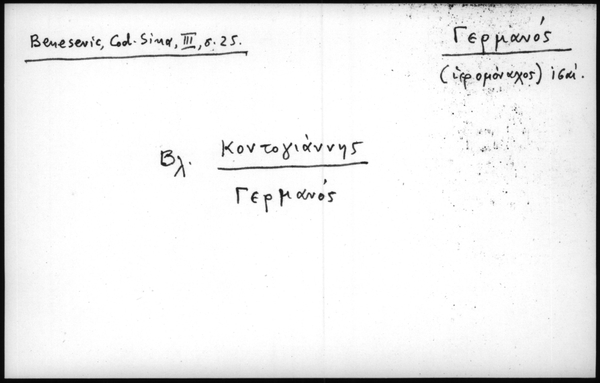 Benesevic, Cod. Sina, III, σ. 25.
Γερμανός
(ἱερομόναχος) ιϛαί.
Βλ. Κοντογιάννης
Γερμανός